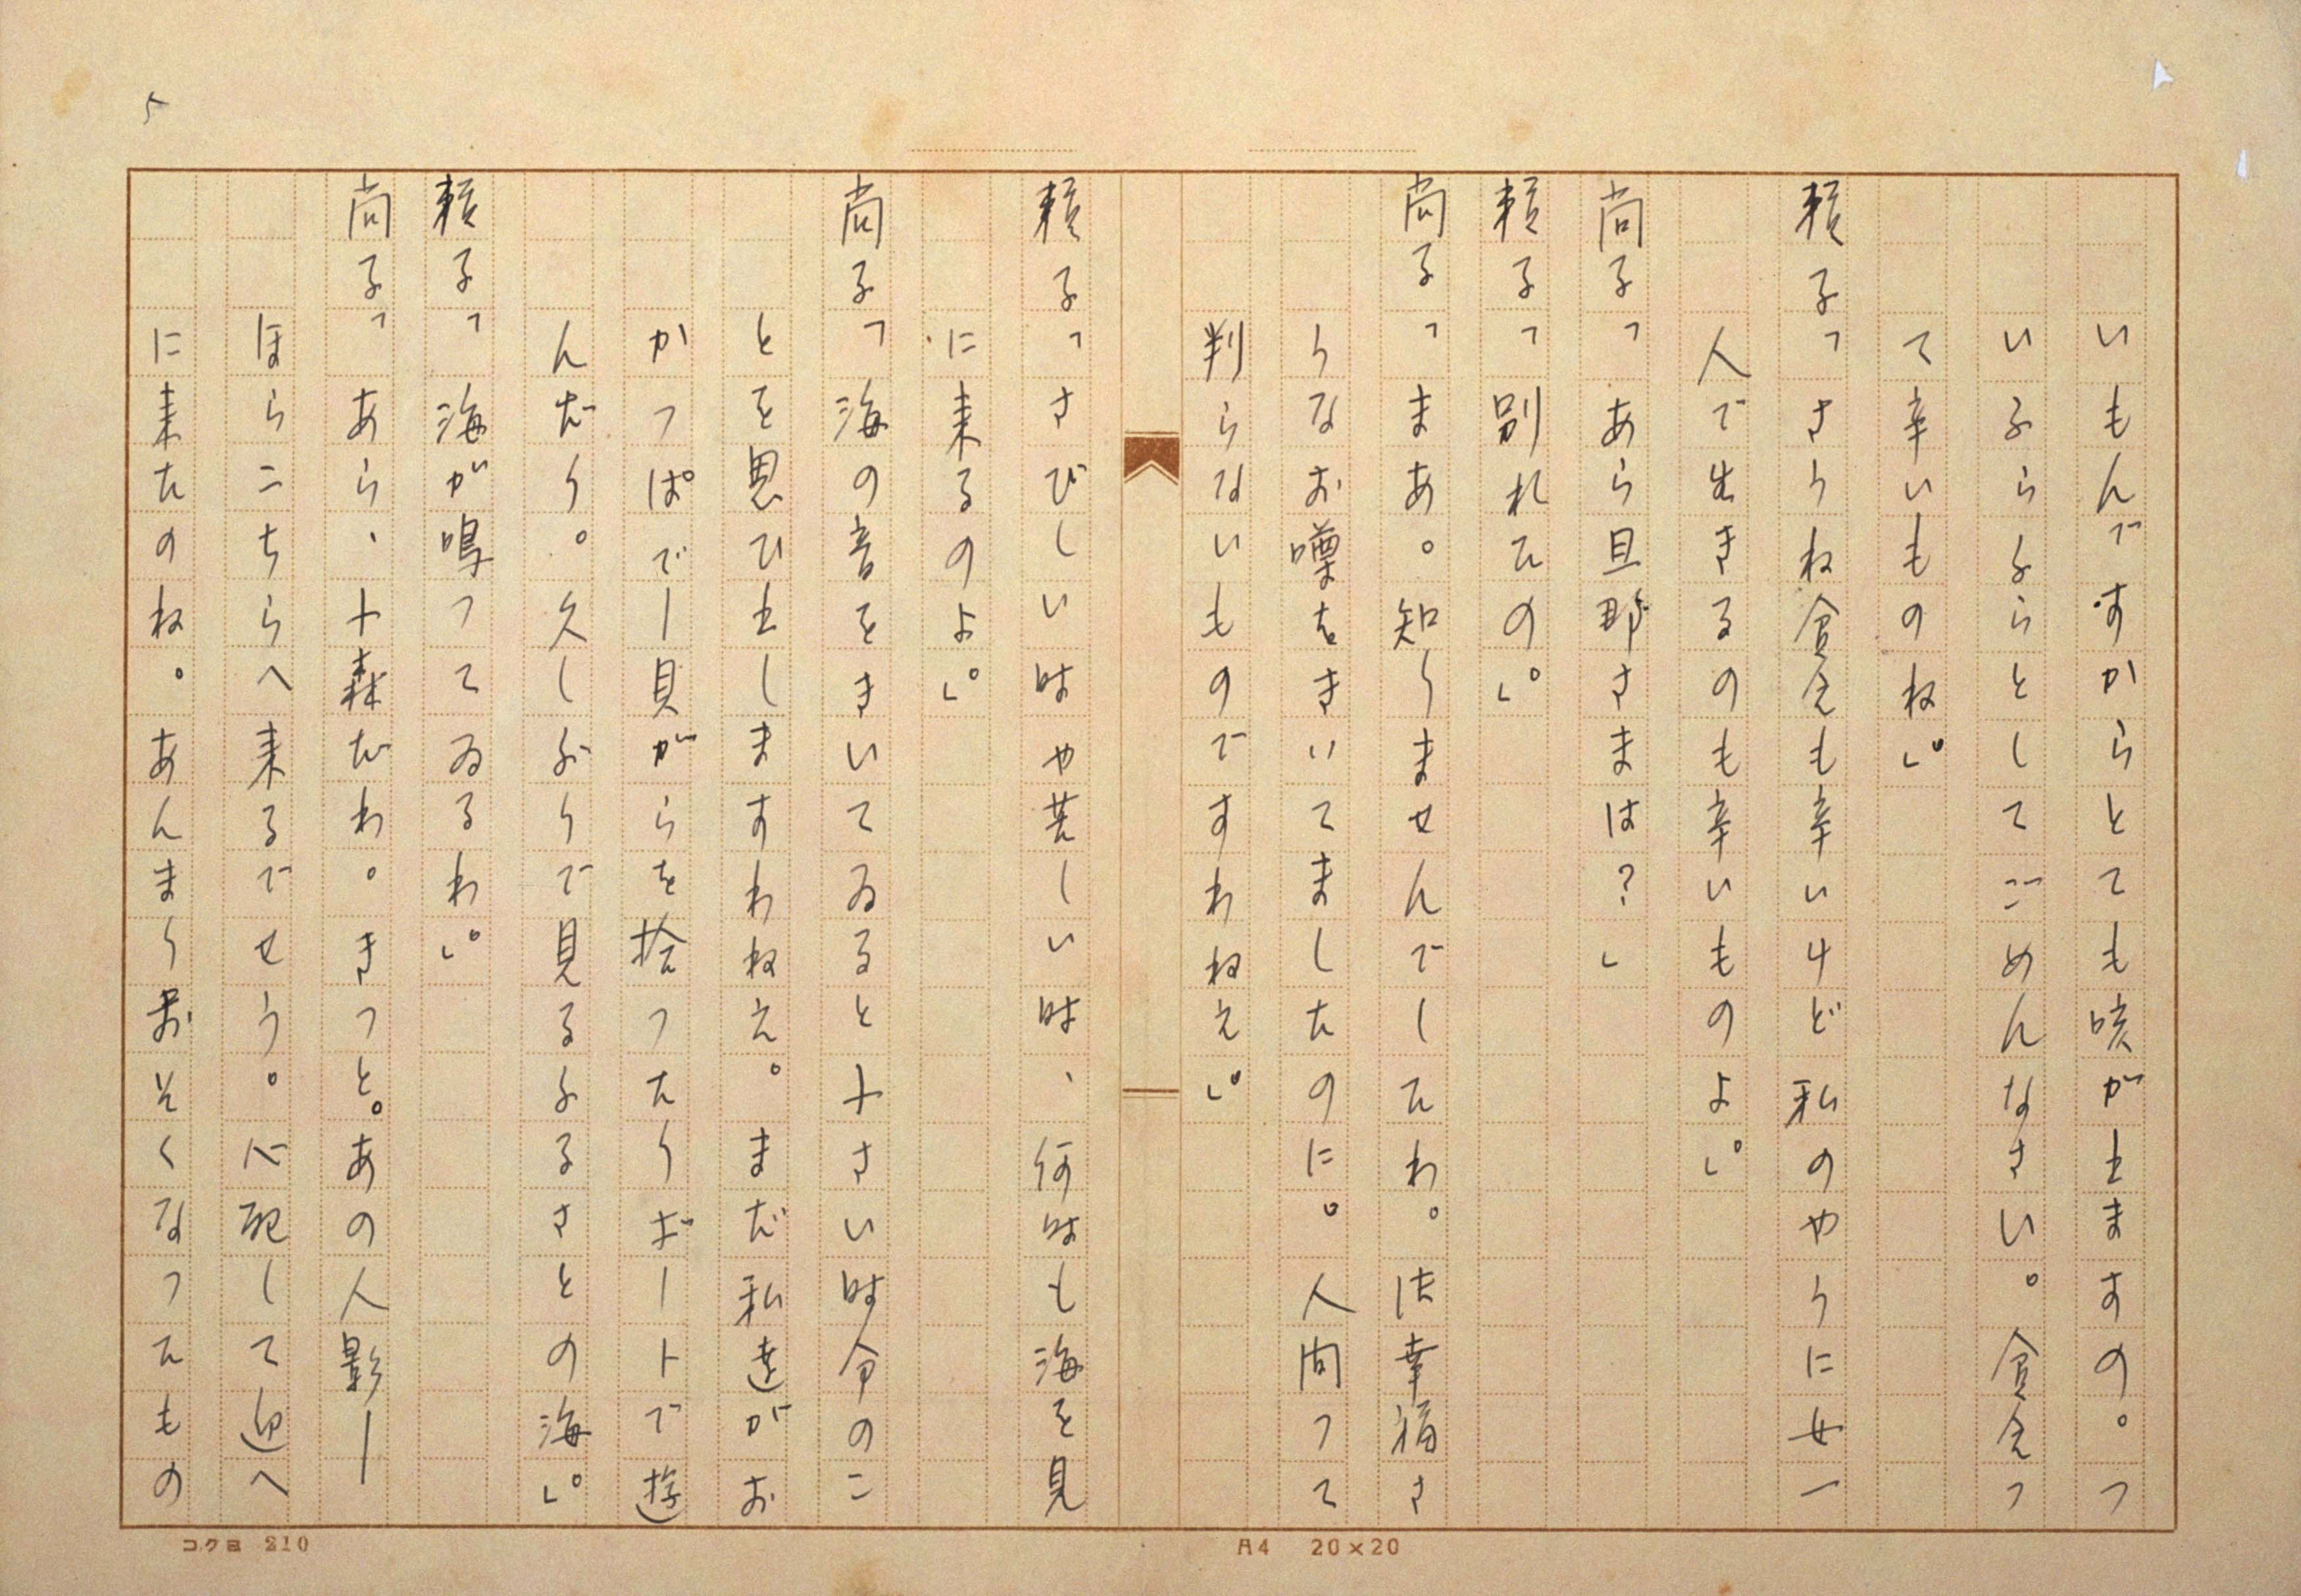 5
いもんですからとても咳が出ますの。つ
いふらふらとしてごめんなさい。貧乏っ
て辛いものね。」
頼子「さうね貧乏も辛いけど私のやうに女一
人で生きるのも辛いものよ。」
尚子「あら旦那さまは?」
頼子「別れたの。」
尚子「まあ。知りませんでしたわ。御幸福さ
うなお噂をきいてましたのに。人間って
判らないものですわねえ。」
頼子「さびしい時や苦しい時、何時も海を見
に来るのよ。」
尚子「海の音をきいてゐると小さい時分のこ
とを思ひ出しますわねえ。まだ私達がお
かつぱでー貝がらを拾つたりボートで遊
んだり。久しぶりで見るふるさとの海。」
頼子「海が鳴つてゐるわ。」
尚子「あら、小森だわ。きつと。あの人影ー
ほらこちらへ来るでせう。心配して迎へ
に来たのね。あんまりおそくなつたもの
コクヨ 210
A4 20×20